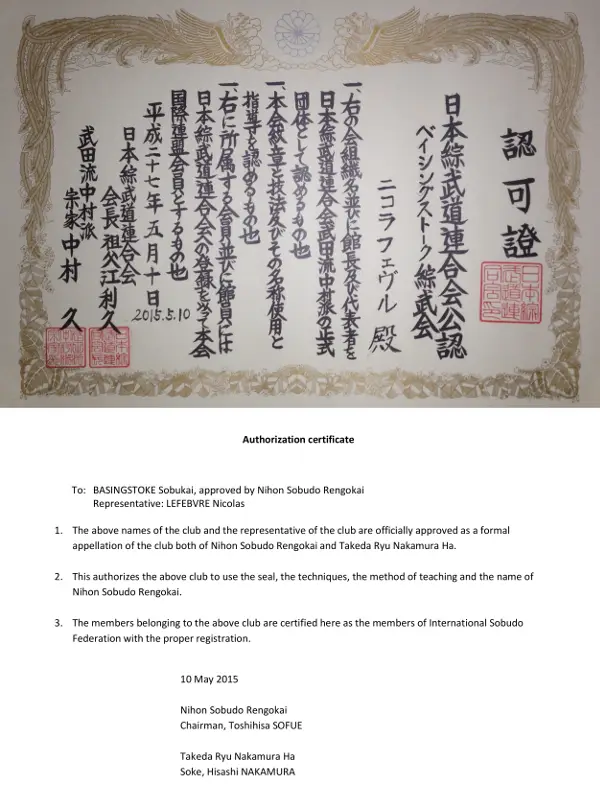 認可證
日本綜武道連合会公認
ベイシングストーク綜武会
ニコラフェヴル殿
一、右の会組織名並びに館長及び代表者を
日本綜武道連合会武田流中村派の正式
団体として認めるもの也
一、本会紋章と技法及びその名称使用と
指導を認めるもの也
一、右に所属する会員並びに館員には
日本綜武道連合会への登録を以て本会
国際連盟会員とするもの也
平成二十七年五月十日
2015.5.10
日本綜武道連合会
会長 祖父江利久
武田流中村派
宗家 中村 久
Authorization certificate
To: BASINGSTOKE Sobukai, approved by Nihon Sobudo Rengokai
Representative: LEFEBVRE Nicolas
1. The above names of the club and the representative of the club are officially approved as a formal
appellation of the club both of Nihon Sobudo Rengokai and Takeda Ryu Nakamura Ha.
2. This authorizes the above club to use the seal, the techniques, the method of teaching and the name of
Nihon Sobudo Rengokai.
3. The members belonging to the above club are certified here as the members of International Sobudo
Federation with the proper registration.
10 May 2015
Nihon Sobudo Rengokai
Chairman, Toshihisa SOFUE
Takeda Ryu Nakamura Ha
Soke, Hisashi NAKAMURA